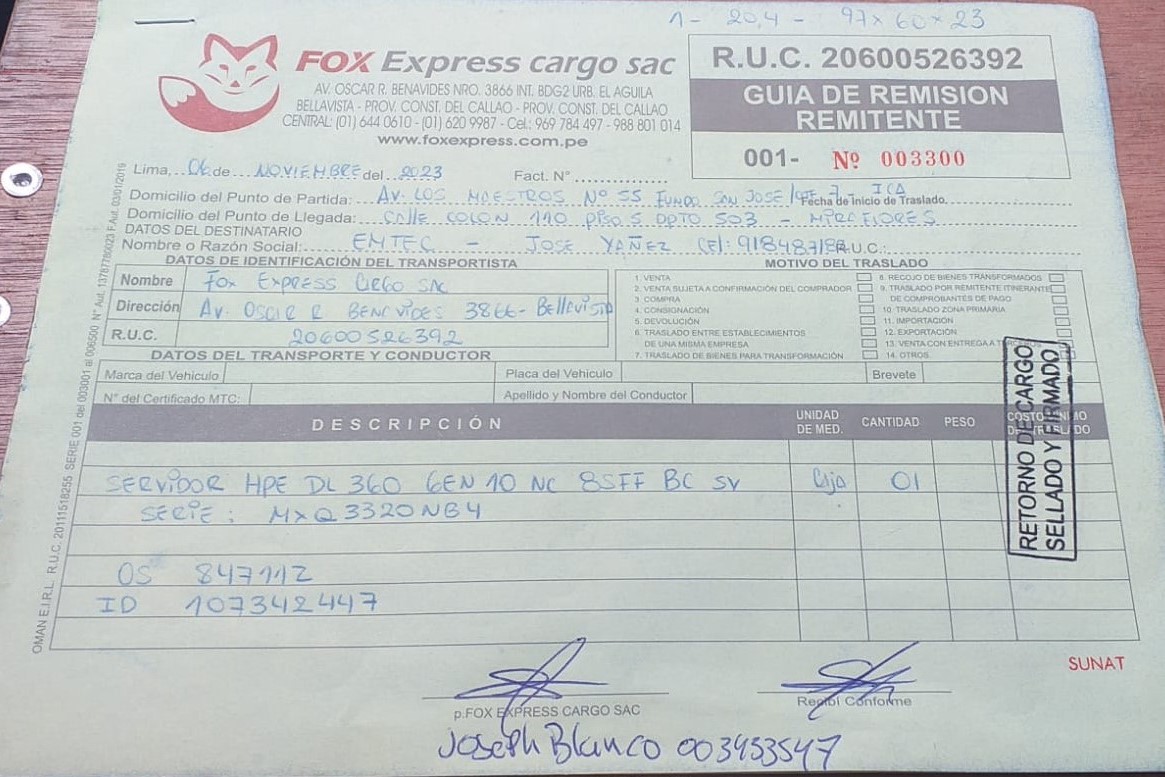 1- 20,4 - 97x60x23
FOX Express cargo sac
AV. OSCAR R. BENAVIDES NRO. 3866 INT. BDG2 URB. EL AGUILA
BELLAVISTA - PROV. CONST. DEL CALLAO - PROV. CONST. DEL CALLAO
CENTRAL: (01) 644 0610 - (01) 620 9987 - Cel.: 969 784 497 - 988 801 014
www.foxexpress.com.pe
R.U.C. 20600526392
GUIA DE REMISION
REMITENTE
001- Nº 003300
Lima, 06 de NOVIEMBRE del 2023 Fact. N°
Domicilio del Punto de Partida: AV. LOS MAESTROS Nº 55 FUNDO SAN JOSE - ICA
Fecha de inicio de Traslado
Domicilio del Punto de Llegada: CALLE COLON 110 PISO 5 DPTO 503 - MIRAFLORES
DATOS DEL DESTINATARIO
Nombre o Razón Social: EMTEC - JOSE YAÑEZ Cel: R.U.C.:
DATOS DE IDENTIFICACIÓN DEL TRANSPORTISTA
Nombre FOX EXPRESS CARGO SAC
Dirección AV. OSCAR R BENAVIDES 3866- Bellavista
R.U.C. 20600526392
MOTIVO DEL TRASLADO
1. VENTA
2. VENTA SUJETA A CONFIRMACIÓN DEL COMPRADOR
3. COMPRA
4. CONSIGNACIÓN
5. DEVOLUCIÓN
6. TRASLADO ENTRE ESTABLECIMIENTOS
DE UNA MISMA EMPRESA
7. TRASLADO DE BIENES PARA TRANSFORMACIÓN
8. RECOJO DE BIENES TRANSFORMADOS
9. TRASLADO POR REMITENTE ITINERANTE
DE COMPROBANTES DE PAGO
10. TRASLADO ZONA PRIMARIA
11. IMPORTACIÓN
12. EXPORTACIÓN
13. VENTA CON ENTREGA A
14. OTROS
DATOS DEL TRANSPORTE Y CONDUCTOR
Marca del Vehiculo Placa del Vehiculo Brevete
N° del Certificado MTC: Apellido y Nombre del Conductor
DESCRIPCIÓN UNIDAD DE MED. CANTIDAD PESO
SERVIDOR HPE DL 360 GEN 10 NC 8SFF BC SV Caja 01
SERIE: MXQ3320NB4
OS 847112
ID 107342447
RETORNO DE CARGO
SELLADO Y FIRMADO
SUNAT
p.FOX EXPRESS CARGO SAC
Recibí Conforme
Joseph Blanco 003453547
OMAN E.I.R.L. R.U.C. 20111518255 SERIE 001 del 003001 al